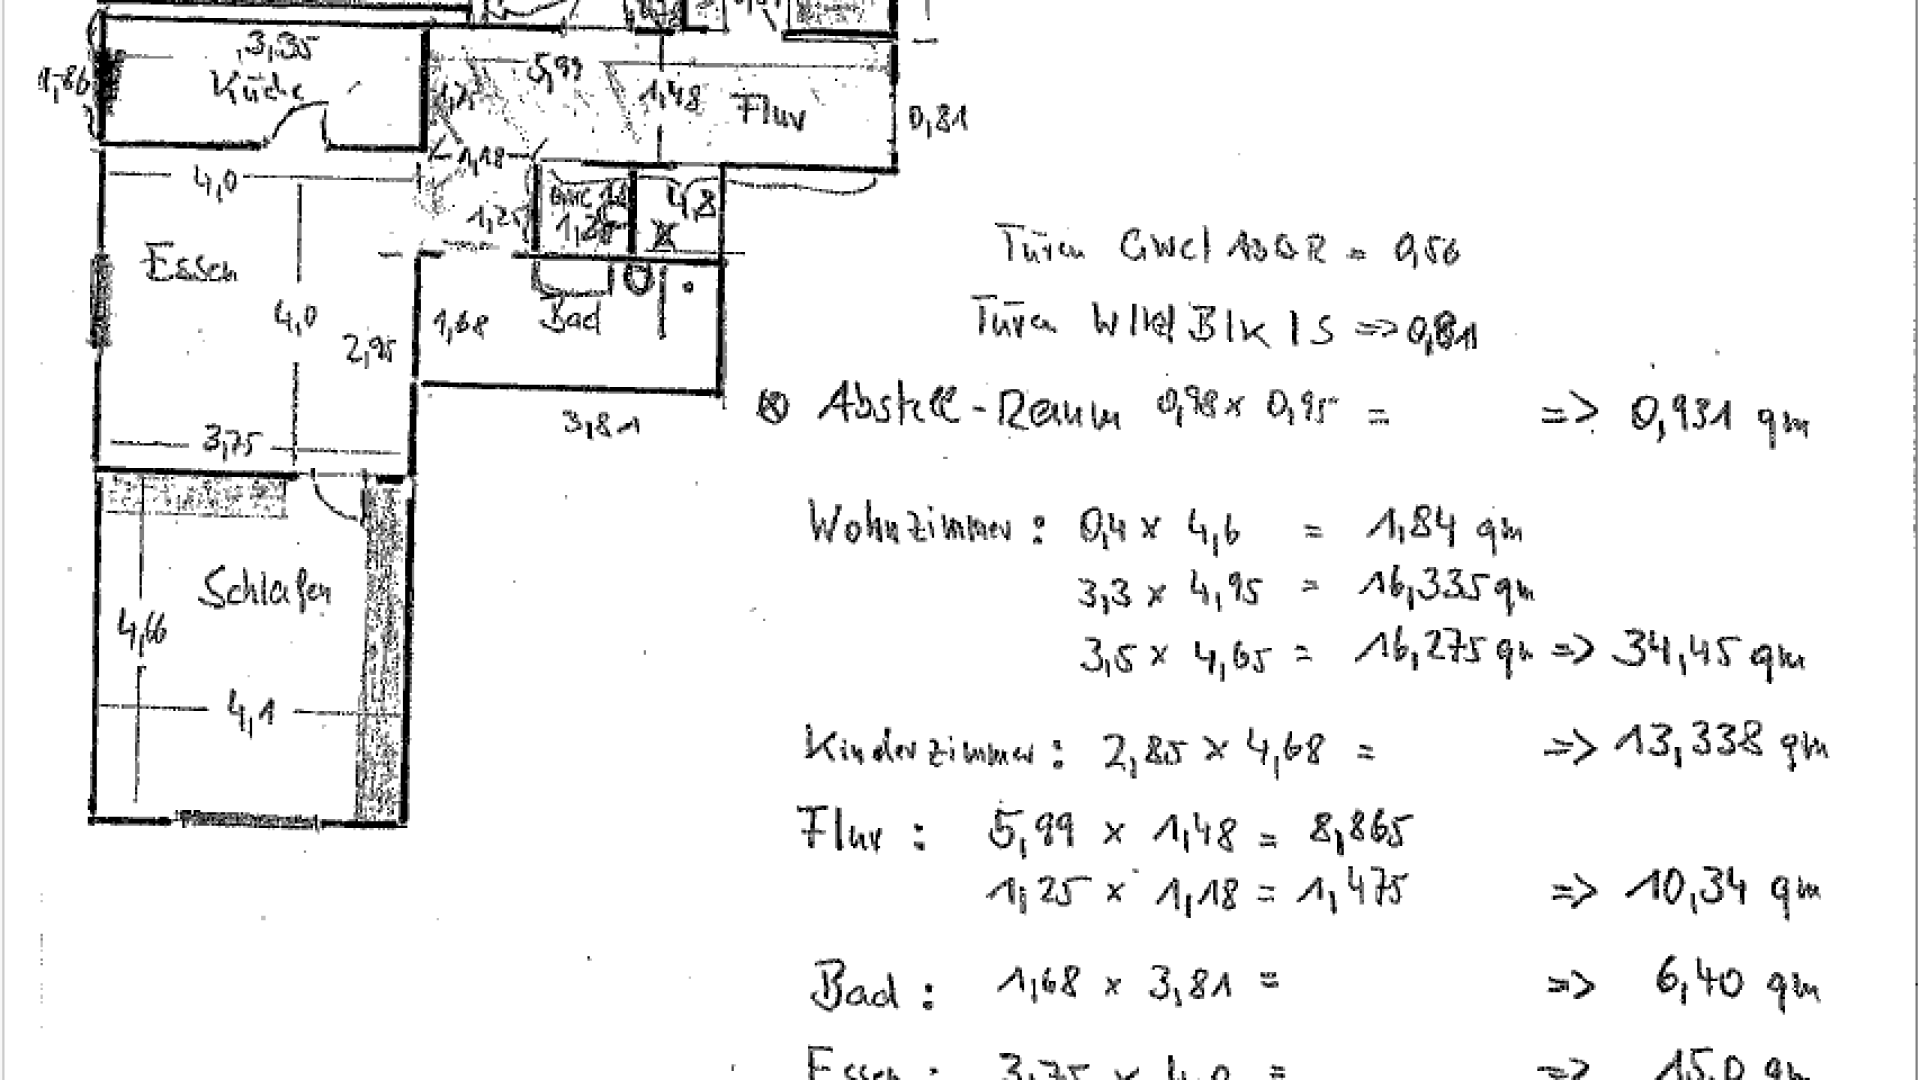 3,35
1,86 Küche
5,99
1,25 1,48 Flur 0,81
1,18
4,0
1,25
Essen
4,0
2,95 1,68 Bad
3,75
3,81
Schlafen
4,66
4,1
Türen GWC/ = 0,56
Türen => 0,81
⊗ Abstell-Raum 0,98 x 0,95 = => 0,931 qm
Wohnzimmer: 0,4 x 4,6 = 1,84 qm
3,3 x 4,95 = 16,335 qm
3,5 x 4,65 = 16,275 qm => 34,45 qm
Kinderzimmer: 2,85 x 4,68 = => 13,338 qm
Flur: 5,99 x 1,48 = 8,865
1,25 x 1,18 = 1,475 => 10,34 qm
Bad: 1,68 x 3,81 = => 6,40 qm
Essen: 3,75 x 4,0 = => 15,0 qm